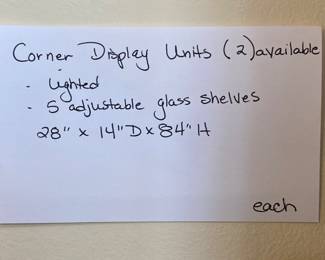 Corner Display Units (2) available
- Lighted
- 5 adjustable glass shelves
28" x 14" D x 84" H
each